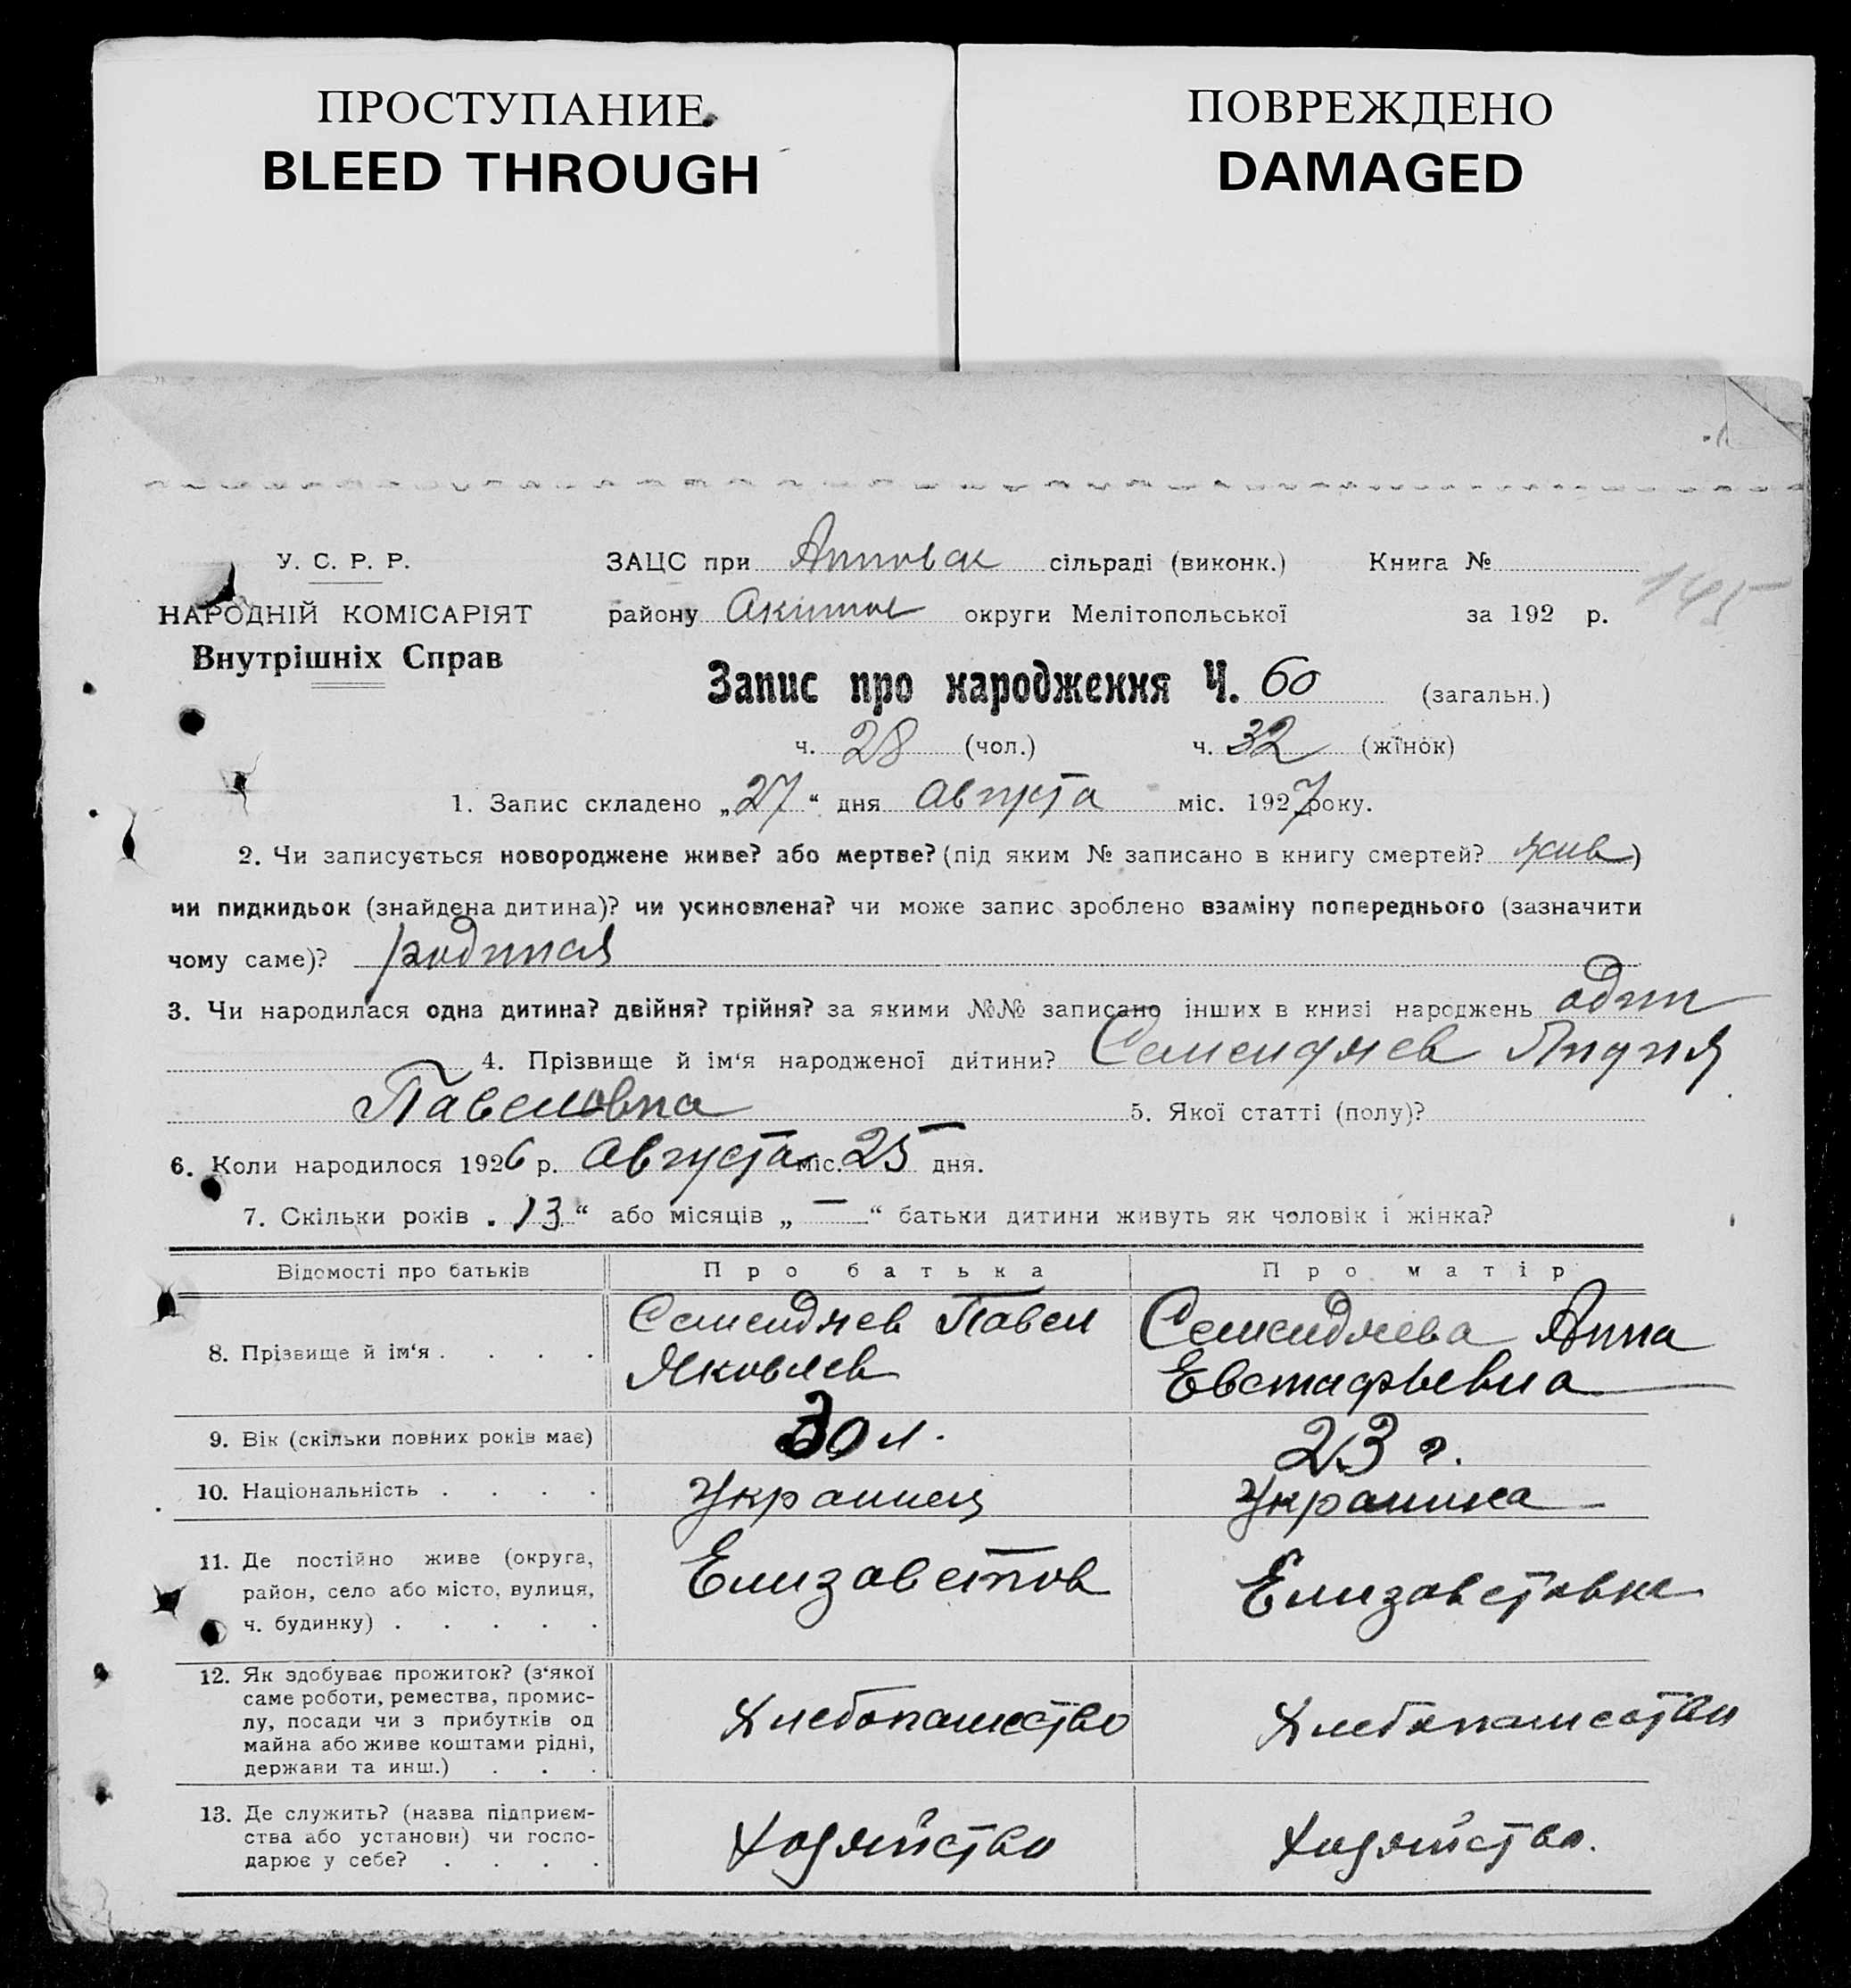 ПРОСТУПАНИЕ
BLEED THROUGH
ПОВРЕЖДЕНО
DAMAGED
У. С. Р. Р.
НАРОДНІЙ КОМІСАРІЯТ
Внутрішніх Справ
ЗАЦС при сільраді (виконк.) Книга №
району Акимов округи Мелітопольської за 192 р.
145
Запис про народження Ч. 60 (загальн.)
ч. 28 (чол.) ч. 32 (жінок)
1. Запис складено „27“ дня Августа міс. 1927 року.
2. Чи записується новороджене живе? або мертве? (під яким № записано в книгу смертей? жив)
чи пидкидьок (знайдена дитина)? чи усиновлена? чи може запис зроблено взаміну попереднього (зазначити
чому саме)? родная
3. Чи народилася одна дитина? двійня? трійня? за якими №№ записано інших в книзі народжень один
4. Прізвище й ім‘я народженої дитини? Семендяев Лидия
Павеловна 5. Якої статті (полу)?
6. Коли народилося 1926 р. Августа міс. 25 дня.
7. Скільки років „13“ або місяців „—“ батьки дитини живуть як чоловік і жінка?
Відомості про батьків Про батька Про матір
8. Прізвище й ім‘я . . . . Семендяев Павел Яковлев Семендяева Анна Евстафьевна
9. Вік (скільки повних років має) 30 л. 23 г.
10. Національність . . . . Украинец Украинка
11. Де постійно живе (округа, Елизаветов Елизаветовка
район, село або місто, вулиця,
ч. будинку) . . . . .
12. Як здобуває прожиток? (з‘якої
саме роботи, ремества, промис-
лу, посади чи з прибутків од Хлебопашество Хлебопашество
майна або живе коштами рідні,
держави та инш.) . . .
13. Де служить? (назва підприєм-
ства або установи) чи госпо- Хозяйство Хозяйство.
дарює у себе? . . . .